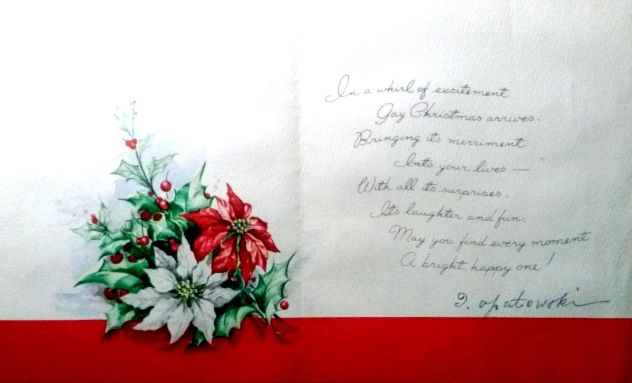 In a whirl of excitement
Gay Christmas arrives.
Bringing its merriment
Into your lives —
With all its surprises.
Its laughter and fun.
May you find every moment
A bright, happy one!
I. opatowski